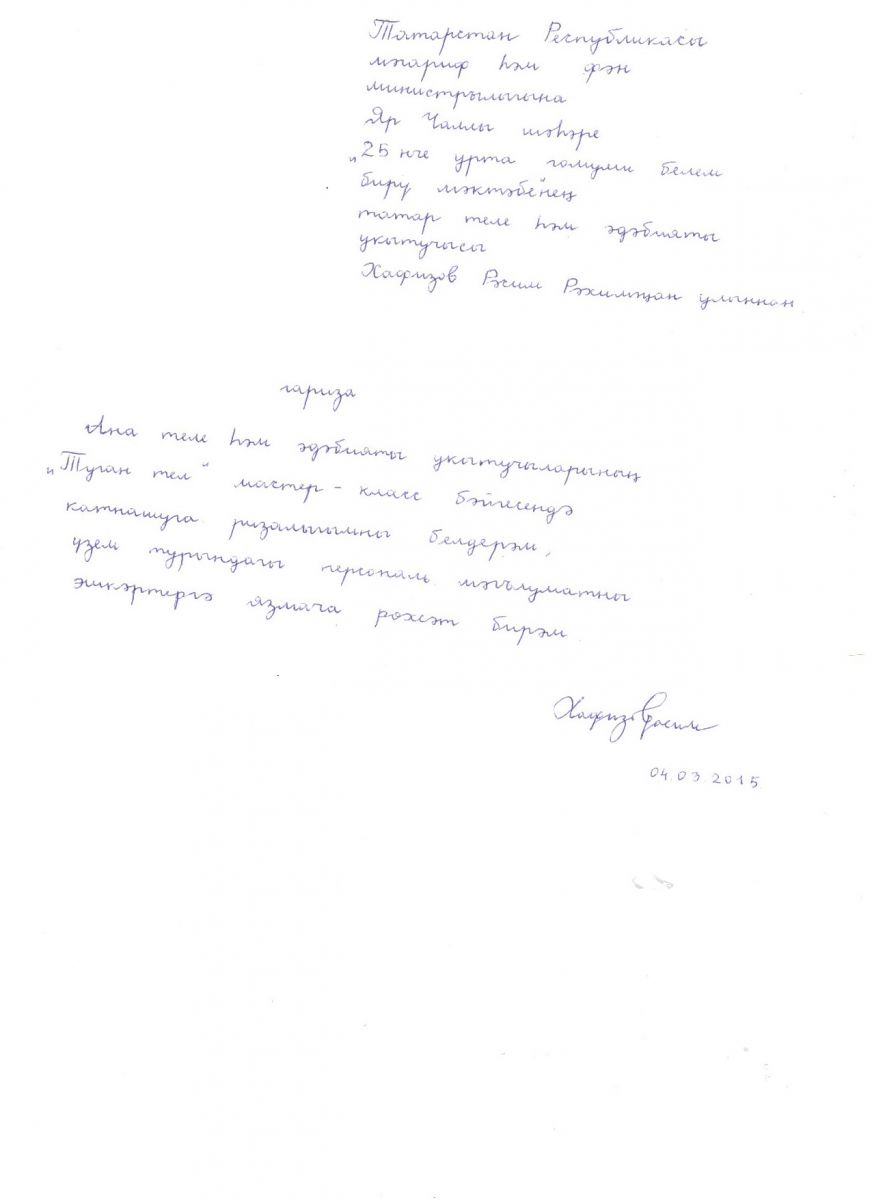 Татарстан Республикасы
мәгариф һәм фән
министрлыгына
Яр Чаллы шәһәре
„25 нче урта гомуми белем
бирү мәктәбе"нең
татар теле һәм әдәбияты
укытучысы
Хафизов Рәсим Рәхимҗан улыннан
гариза
Ана теле һәм әдәбияты укытучыларының
„Туган тел" мастер-класс бәйгесендә
катнашуга ризалыгымны белдерәм,
үзем турындагы персональ мәгълүматны
эшкәртергә язмача рөхсәт бирәм
Хафизов Рәсим
04.03.2015